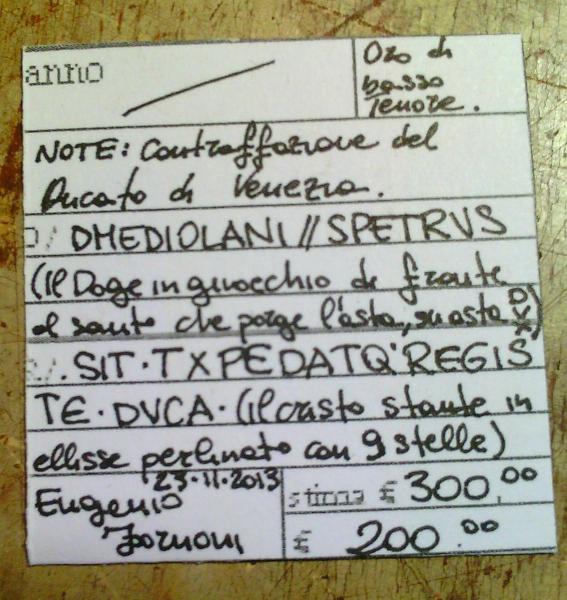 anno
Oro di
basso
Tenore.
NOTE: Contraffazione del
Ducato di Venezia.
D/ DMEDIOLANI // SPETRVS
(Il Doge in ginocchio di fronte
al santo che porge l'asta, su asta DVX)
R/. SIT·TXPEDATQ'REGIS
TE·DVCA·(il cristo stante in
ellisse perlinato con 9 stelle)
23·11·2013
Eugenio
stima £ 300,00
£ 200.00